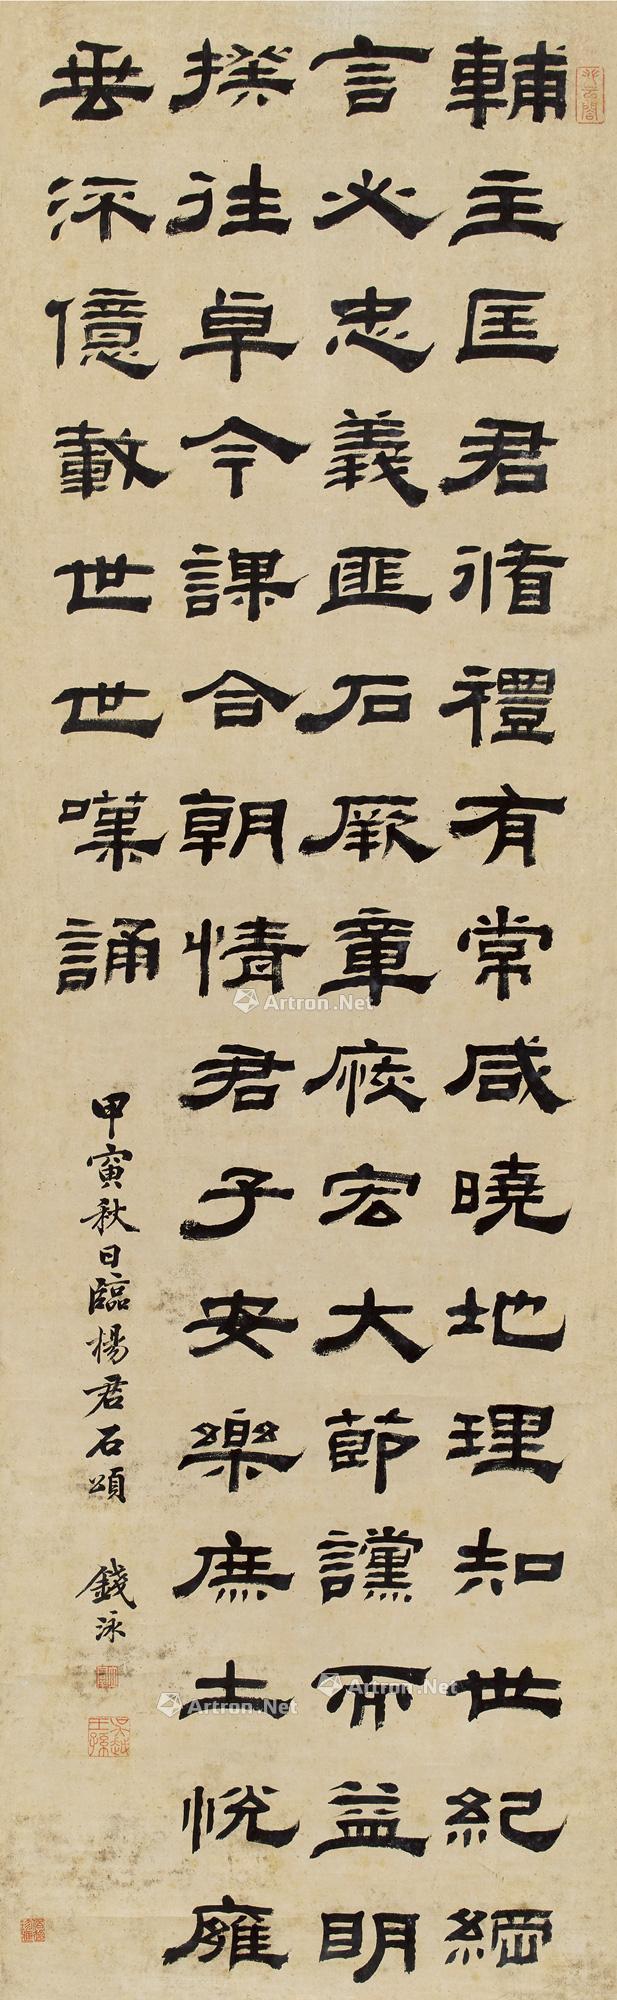 輔主匡君循禮有常咸曉地理知世紀綱
言必忠義匪石厥章恢宏大節讜而益明
揆往卓今謀合朝情君子安樂庶士悅雍
垂流億載世世嘆誦
甲寅秋日臨楊君石頌
錢泳
吳越王孫
Artron.Net
Artron.Net
Artron.Net